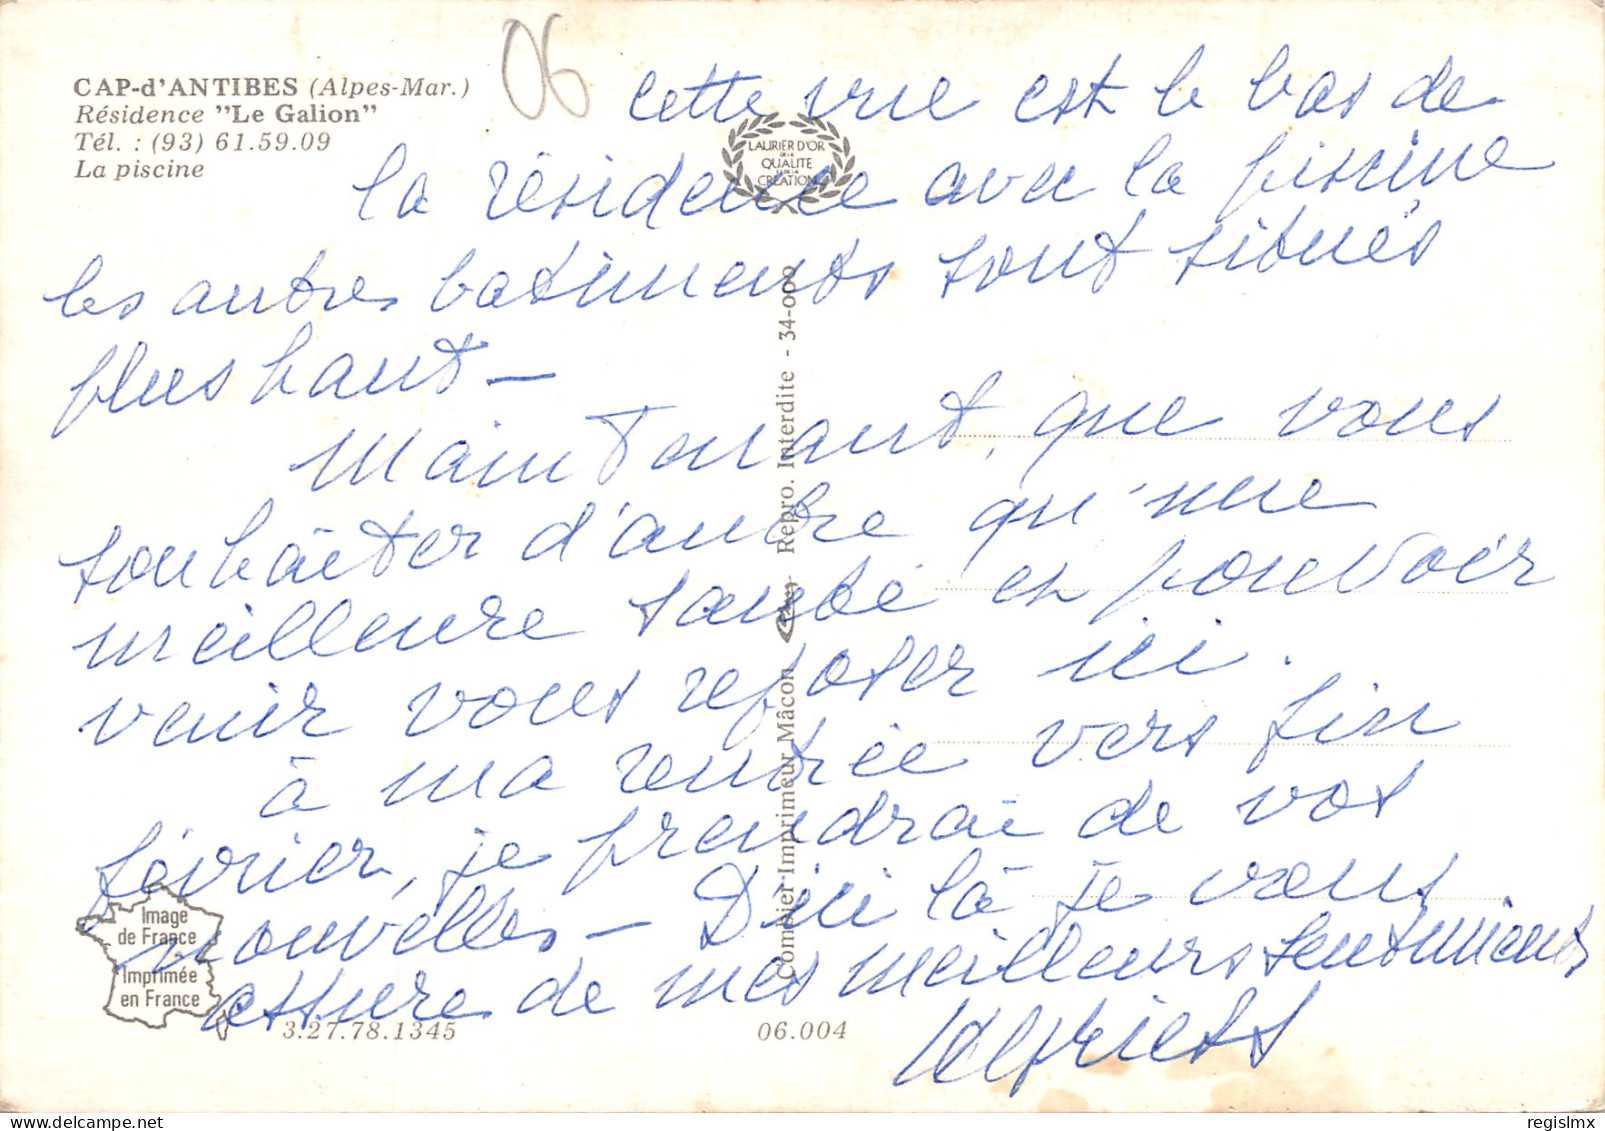 CAP-d'ANTIBES (Alpes-Mar.)
Résidence "Le Galion"
Tél. : (93) 61.59.09
La piscine
06
LAURIER D'OR
DE LA
QUALITÉ
CRÉATION
Cette vue est le bas de
la résidence avec la piscine
les autres batiments sont situés
plus haut —
Maintenant, que vous
souhaiter d'autre qu'une
meilleure santé en pouvoir
venir vous reposer ici.
à ma rentrée vers fin
février, je prendrai de vos
nouvelles — D'ici là je vous
assure de mes meilleurs sentiments
Combier Imprimeur Mâcon
Repro. Interdite - 34-000
Image
de France
Imprimée
en France
3.27.78.1345
06.004
regislmx